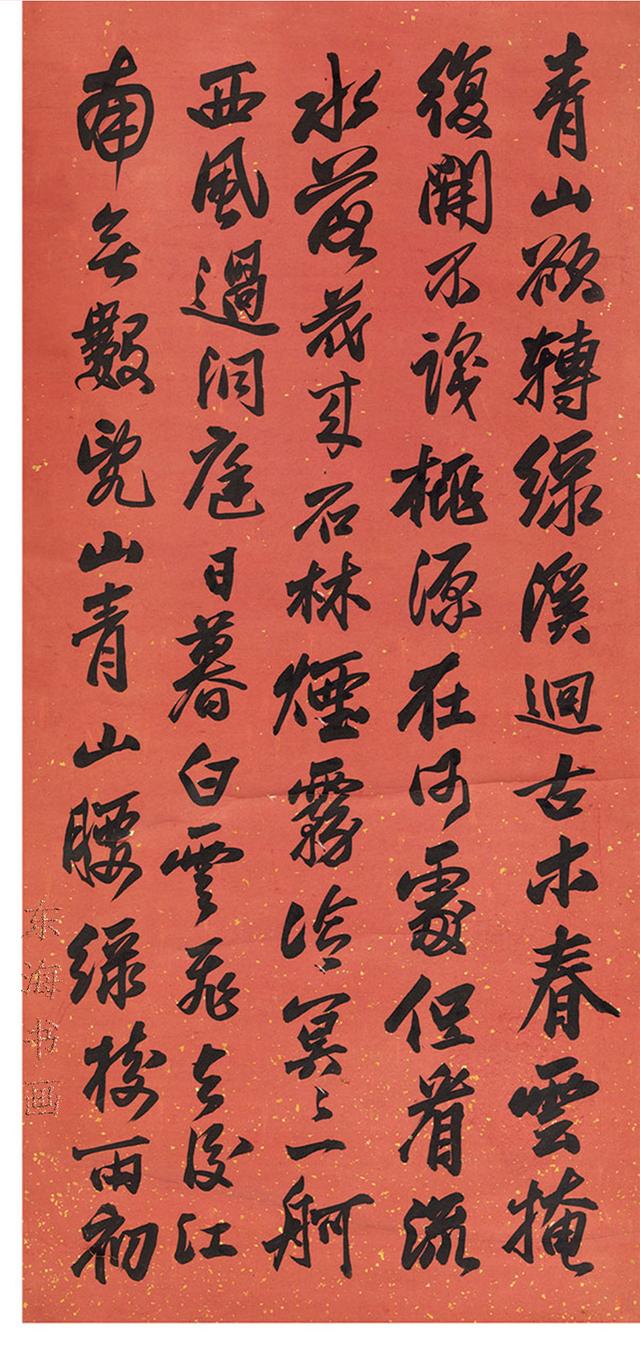 青山欲轉綠溪迴古木春雲掩
復開不識桃源在何處但看流
水落花來石林煙霧冷冥々一舸
西風過洞庭日暮白雲飛去後江
南無數亂山青山腰綠樹雨初
东海书画